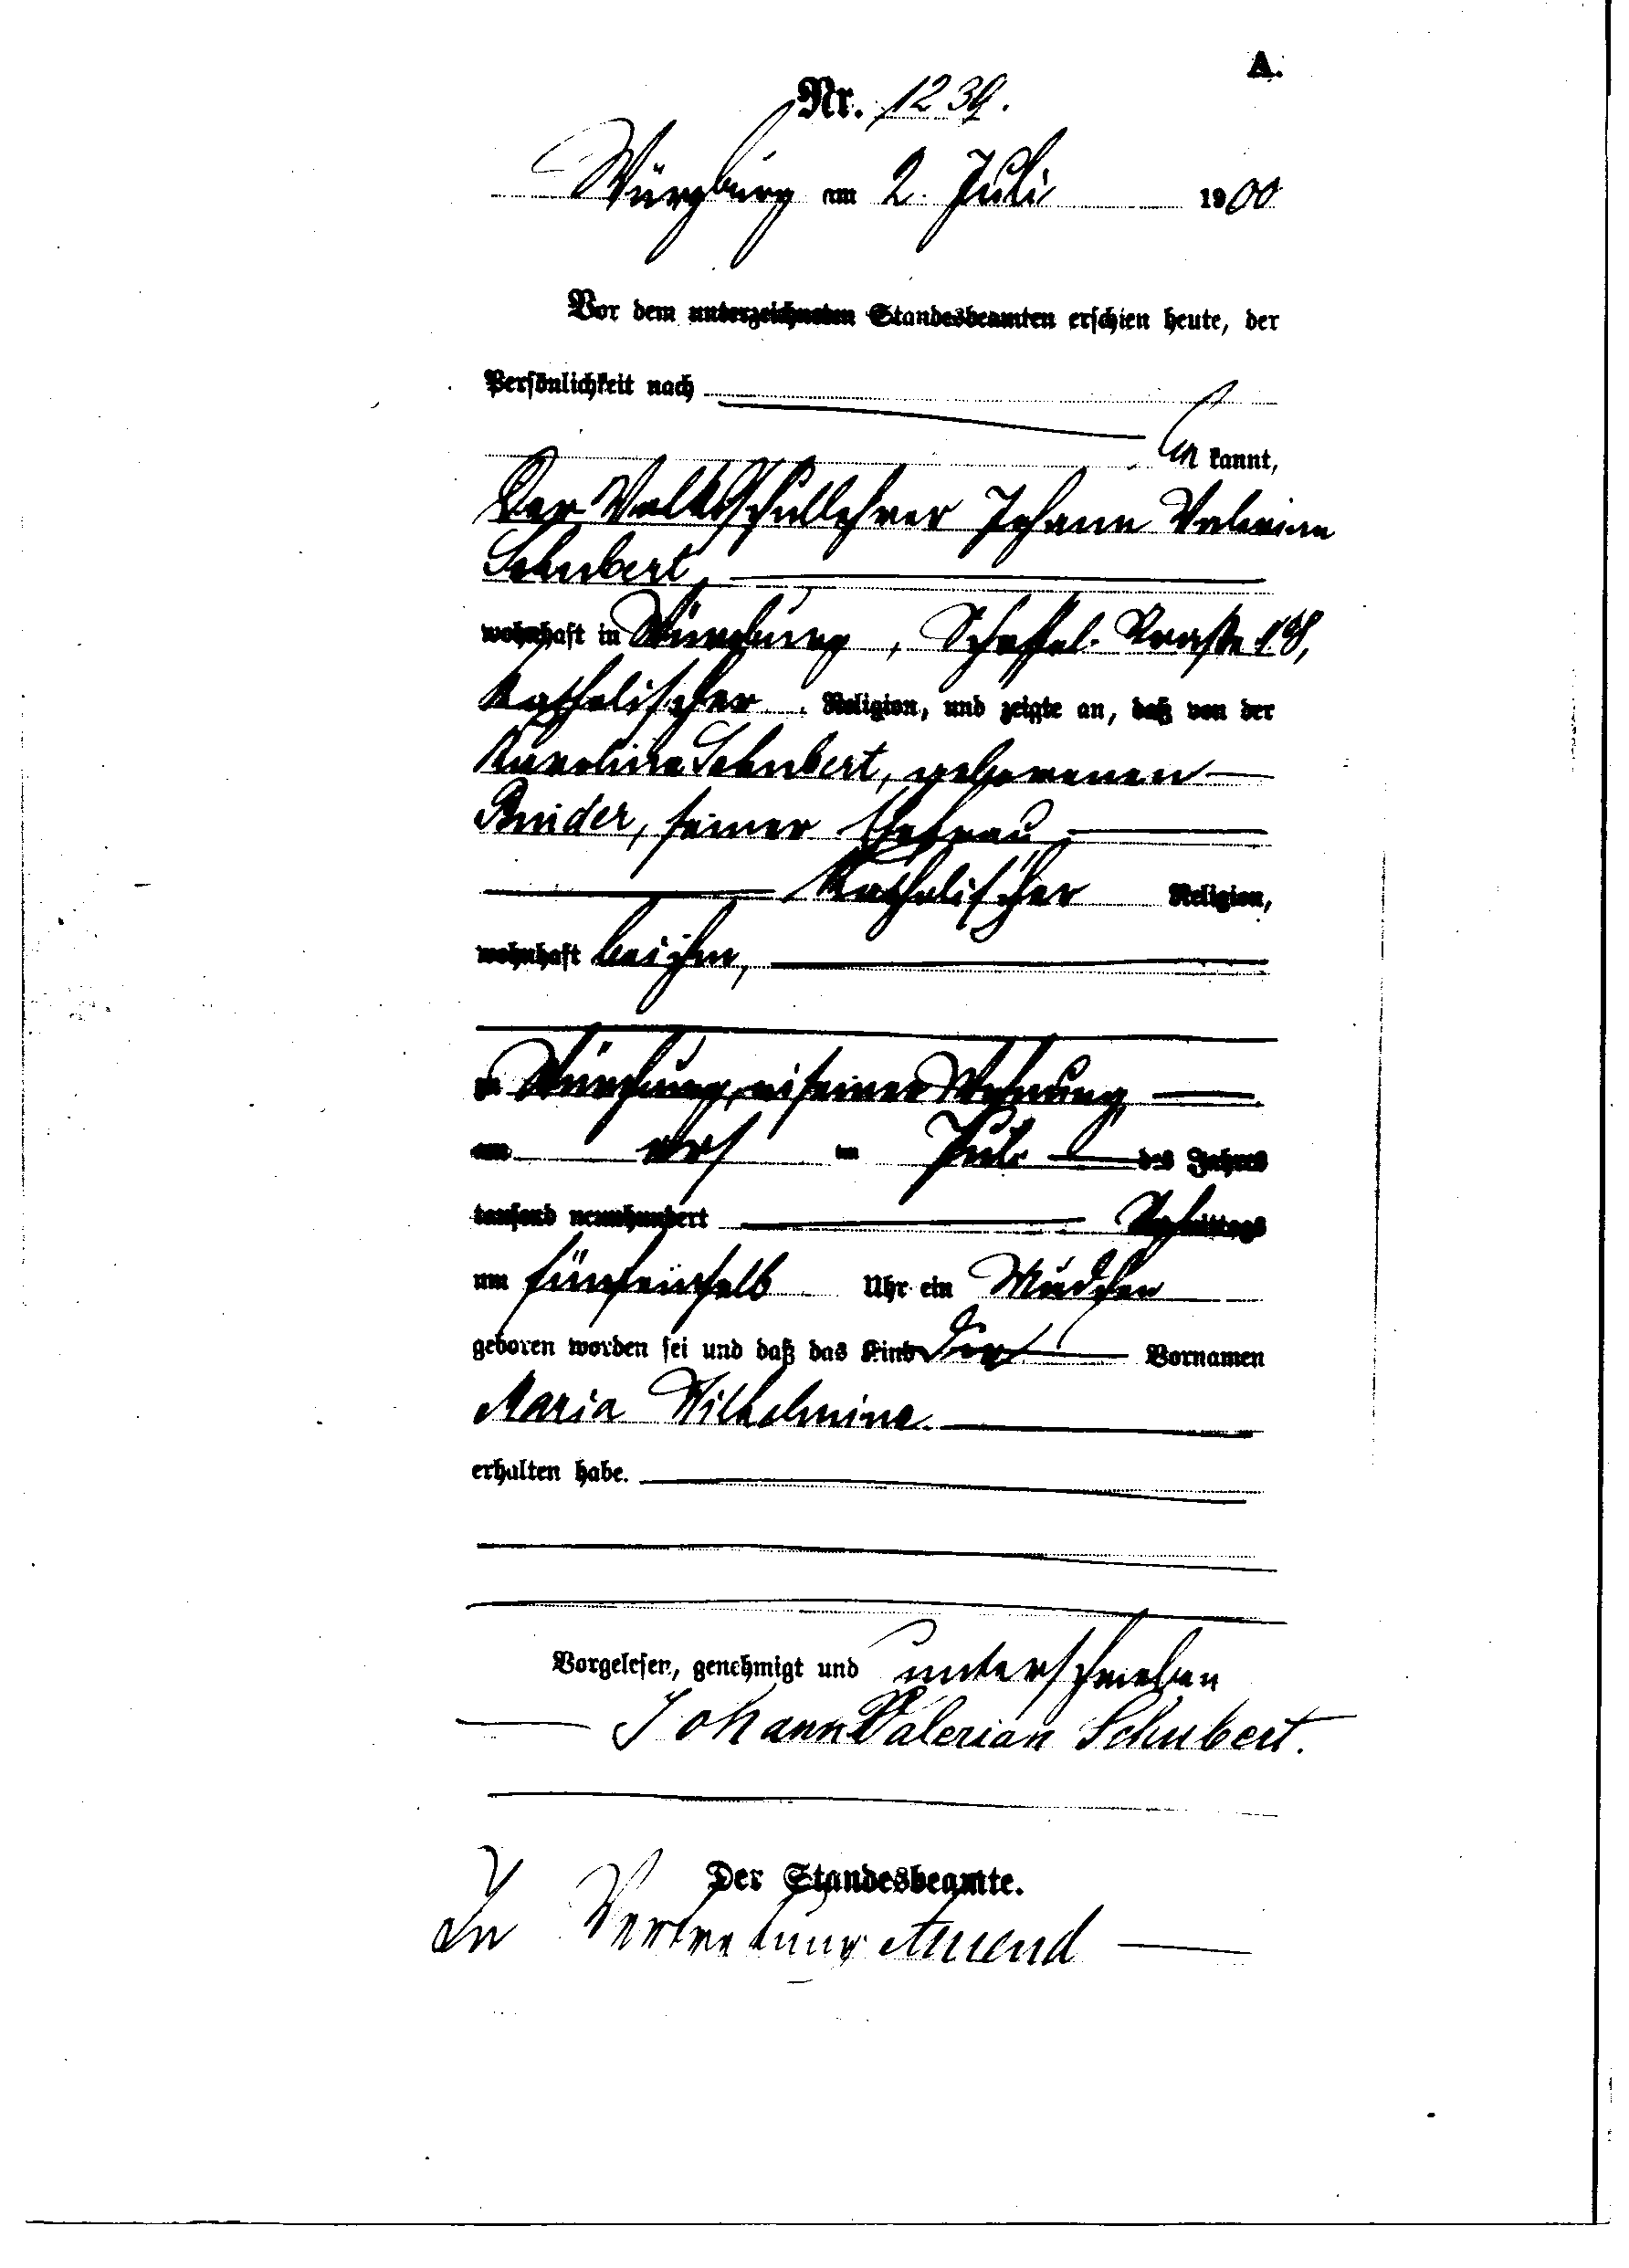 A.
Nr. 1239.
Würzburg am 2. Juli 1900
Vor dem unterzeichneten Standesbeamten erschien heute, der
Persönlichkeit nach
kannt,
Der Volksschullehrer Johann Valerian
Schubert,
wohnhaft in Würzburg, Scheffel-Straße
katholischer Religion, und zeigte an, daß von der
Karolina Schubert, geborenen
seiner Ehefrau
katholischer Religion,
wohnhaft bei ihm,
zu Würzburg, in seiner Wohnung
am im Juli des Jahres
tausend neunhundert Nachmittags
um fünfeinhalb Uhr ein Mädchen
geboren worden sei und daß das Kind die Vornamen
Maria Wilhelmine
erhalten habe.
Vorgelesen, genehmigt und unterschrieben
Johann Valerian Schubert.
Der Standesbeamte.
In Vertretung Amend